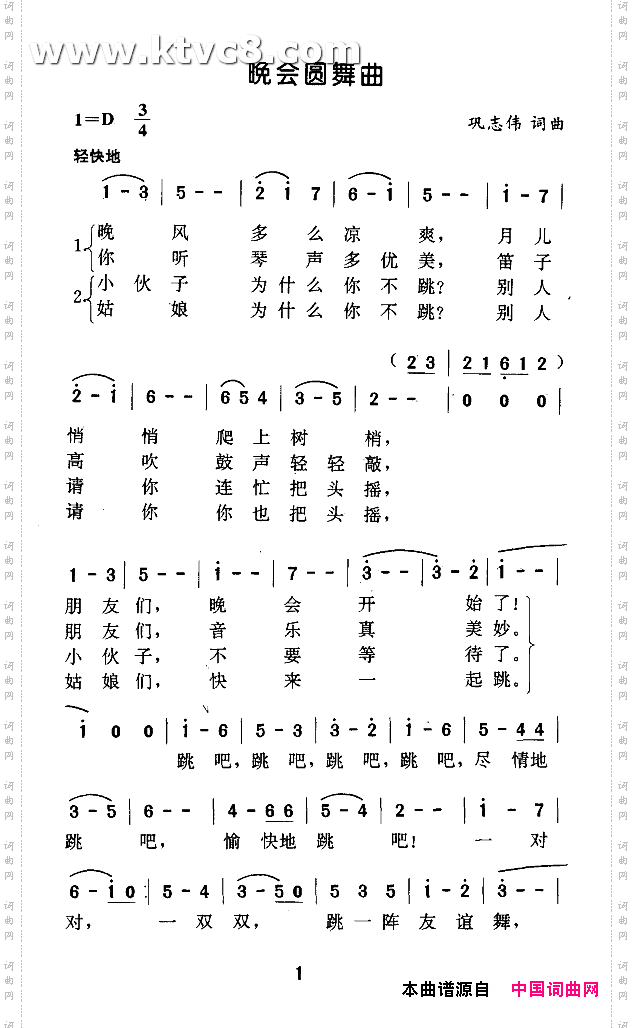 www.ktvc8.com
晚会圆舞曲
1=D 3/4
巩志伟 词曲
轻快地
1 - 3 | 5 - - | 2̇ 1̇ 7 | 6 - 1̇ | 5 - - | 1̇ - 7 |
1.晚 风 多 么 凉 爽, 月 儿
你 听 琴 声 多 优 美, 笛 子
2.小 伙 子 为 什 么 你 不 跳? 别 人
姑 娘 为 什 么 你 不 跳? 别 人
( 2 3 | 2 1 6̣ 1 2 )
2̇ - 1̇ | 6 - - | 6 5 4 | 3 - 5 | 2 - - | 0 0 0 |
悄 悄 爬 上 树 梢,
高 吹 鼓 声 轻 轻 敲,
请 你 连 忙 把 头 摇,
请 你 你 也 把 头 摇,
1 - 3 | 5 - - | 1̇ - - | 7 - - | 3̇ - - | 3̇ - 2̇ | 1̇ - - |
朋 友 们, 晚 会 开 始 了!
朋 友 们, 音 乐 真 美 妙。
小 伙 子, 不 要 等 待 了。
姑 娘 们, 快 来 一 起 跳。
1̇ 0 0 | 1̇ - 6 | 5 - 3 | 3̇ - 2̇ | 1̇ - 6 | 5 - 4 4 |
跳 吧, 跳 吧, 跳 吧, 跳 吧, 尽 情地
3 - 5 | 6 - - | 4 - 6 6 | 5 - 4 | 2 - - | 1̇ - 7 |
跳 吧, 愉 快地 跳 吧! 一 对
6 - 1̇ 0 | 5 - 4 | 3 - 5 0 | 5 3 5 | 1̇ - 2̇ | 3̇ - - |
对, 一 双 双, 跳 一 阵 友 谊 舞,
1
本曲谱源自 中国词曲网
词曲网